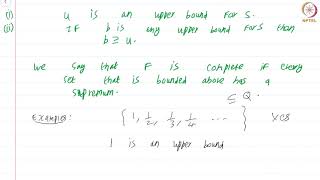 NPTEL
(i) u is an upper bound for S.
(ii) If b is any upper bound for S then
b ≥ u.
we say that F is complete if every
set that is bounded above has a
supremum.
⊆ Q.
Examples: {1, 1/2, 1/3, 1/4, ...}
1 is an upper bound